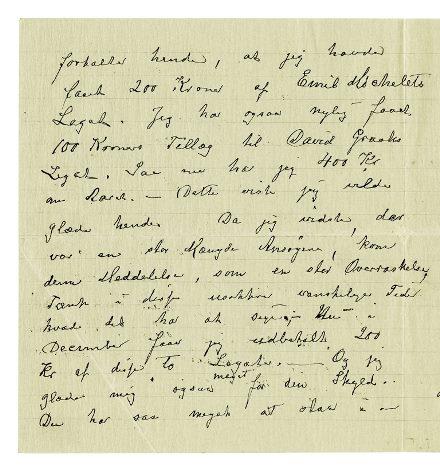 fortalte hende, at jeg havde
faaet 200 Kroner af Emil Michelets
Legat. Jeg har ogsaa nylig faaet
100 Kroners Tillæg til David Graahs
Legat. Saa nu har jeg 400 Kr
om Aaret. — Dette vidste jeg vilde
glæde hende. Da jeg vidste, der
var en stor Mængde Ansøgere, kom
denne Meddelelse, som en stor Overraskelse,
Tænk i disse vanskelige Tider
hvad det har at sige — Nu i
December faar jeg udbetalt 200
Kr af disse to Legater. — Og jeg
glæder mig meget ogsaa for din Skyld.
Du har saa meget at i